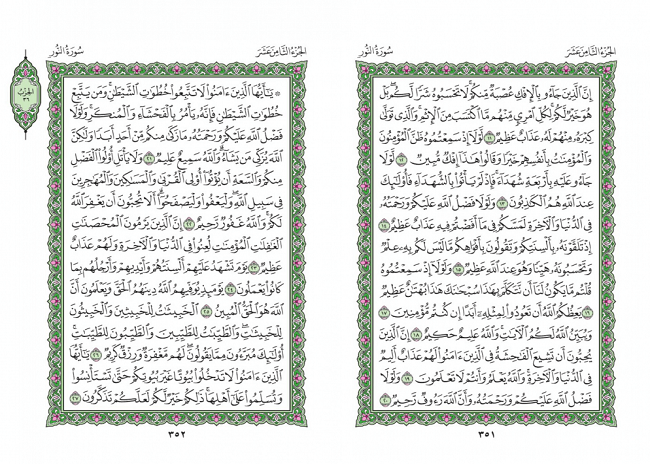 الجزء الثامن عشر
سورة النور
إِنَّ ٱلَّذِينَ جَآءُو بِٱلْإِفْكِ عُصْبَةٌ مِّنكُمْ لَا تَحْسَبُوهُ شَرًّا لَّكُم بَلْ
هُوَ خَيْرٌ لَّكُمْ لِكُلِّ ٱمْرِئٍ مِّنْهُم مَّا ٱكْتَسَبَ مِنَ ٱلْإِثْمِ وَٱلَّذِى تَوَلَّىٰ
كِبْرَهُۥ مِنْهُمْ لَهُۥ عَذَابٌ عَظِيمٌ ١١ لَّوْلَآ إِذْ سَمِعْتُمُوهُ ظَنَّ ٱلْمُؤْمِنُونَ
وَٱلْمُؤْمِنَٰتُ بِأَنفُسِهِمْ خَيْرًا وَقَالُوا۟ هَٰذَآ إِفْكٌ مُّبِينٌ ١٢ لَّوْلَا
جَآءُو عَلَيْهِ بِأَرْبَعَةِ شُهَدَآءَ فَإِذْ لَمْ يَأْتُوا۟ بِٱلشُّهَدَآءِ فَأُو۟لَٰٓئِكَ
عِندَ ٱللَّهِ هُمُ ٱلْكَٰذِبُونَ ١٣ وَلَوْلَا فَضْلُ ٱللَّهِ عَلَيْكُمْ وَرَحْمَتُهُۥ
فِى ٱلدُّنْيَا وَٱلْءَاخِرَةِ لَمَسَّكُمْ فِى مَآ أَفَضْتُمْ فِيهِ عَذَابٌ عَظِيمٌ ١٤
إِذْ تَلَقَّوْنَهُۥ بِأَلْسِنَتِكُمْ وَتَقُولُونَ بِأَفْوَاهِكُم مَّا لَيْسَ لَكُم بِهِۦ عِلْمٌ
وَتَحْسَبُونَهُۥ هَيِّنًا وَهُوَ عِندَ ٱللَّهِ عَظِيمٌ ١٥ وَلَوْلَآ إِذْ سَمِعْتُمُوهُ
قُلْتُم مَّا يَكُونُ لَنَآ أَن نَّتَكَلَّمَ بِهَٰذَا سُبْحَٰنَكَ هَٰذَا بُهْتَٰنٌ عَظِيمٌ
١٦ يَعِظُكُمُ ٱللَّهُ أَن تَعُودُوا۟ لِمِثْلِهِۦٓ أَبَدًا إِن كُنتُم مُّؤْمِنِينَ ١٧
وَيُبَيِّنُ ٱللَّهُ لَكُمُ ٱلْءَايَٰتِ وَٱللَّهُ عَلِيمٌ حَكِيمٌ ١٨ إِنَّ ٱلَّذِينَ
يُحِبُّونَ أَن تَشِيعَ ٱلْفَٰحِشَةُ فِى ٱلَّذِينَ ءَامَنُوا۟ لَهُمْ عَذَابٌ أَلِيمٌ
فِى ٱلدُّنْيَا وَٱلْءَاخِرَةِ وَٱللَّهُ يَعْلَمُ وَأَنتُمْ لَا تَعْلَمُونَ ١٩ وَلَوْلَا
فَضْلُ ٱللَّهِ عَلَيْكُمْ وَرَحْمَتُهُۥ وَأَنَّ ٱللَّهَ رَءُوفٌ رَّحِيمٌ ٢٠
٣٥١
الجزء الثامن عشر
سورة النور
۞ يَٰٓأَيُّهَا ٱلَّذِينَ ءَامَنُوا۟ لَا تَتَّبِعُوا۟ خُطُوَٰتِ ٱلشَّيْطَٰنِ وَمَن يَتَّبِعْ
خُطُوَٰتِ ٱلشَّيْطَٰنِ فَإِنَّهُۥ يَأْمُرُ بِٱلْفَحْشَآءِ وَٱلْمُنكَرِ وَلَوْلَا
فَضْلُ ٱللَّهِ عَلَيْكُمْ وَرَحْمَتُهُۥ مَا زَكَىٰ مِنكُم مِّنْ أَحَدٍ أَبَدًا وَلَٰكِنَّ
ٱللَّهَ يُزَكِّى مَن يَشَآءُ وَٱللَّهُ سَمِيعٌ عَلِيمٌ ٢١ وَلَا يَأْتَلِ أُو۟لُوا۟ ٱلْفَضْلِ
مِنكُمْ وَٱلسَّعَةِ أَن يُؤْتُوٓا۟ أُو۟لِى ٱلْقُرْبَىٰ وَٱلْمَسَٰكِينَ وَٱلْمُهَٰجِرِينَ
فِى سَبِيلِ ٱللَّهِ وَلْيَعْفُوا۟ وَلْيَصْفَحُوٓا۟ أَلَا تُحِبُّونَ أَن يَغْفِرَ ٱللَّهُ
لَكُمْ وَٱللَّهُ غَفُورٌ رَّحِيمٌ ٢٢ إِنَّ ٱلَّذِينَ يَرْمُونَ ٱلْمُحْصَنَٰتِ
ٱلْغَٰفِلَٰتِ ٱلْمُؤْمِنَٰتِ لُعِنُوا۟ فِى ٱلدُّنْيَا وَٱلْءَاخِرَةِ وَلَهُمْ عَذَابٌ
عَظِيمٌ ٢٣ يَوْمَ تَشْهَدُ عَلَيْهِمْ أَلْسِنَتُهُمْ وَأَيْدِيهِمْ وَأَرْجُلُهُم بِمَا
كَانُوا۟ يَعْمَلُونَ ٢٤ يَوْمَئِذٍ يُوَفِّيهِمُ ٱللَّهُ دِينَهُمُ ٱلْحَقَّ وَيَعْلَمُونَ أَنَّ
ٱللَّهَ هُوَ ٱلْحَقُّ ٱلْمُبِينُ ٢٥ ٱلْخَبِيثَٰتُ لِلْخَبِيثِينَ وَٱلْخَبِيثُونَ
لِلْخَبِيثَٰتِ وَٱلطَّيِّبَٰتُ لِلطَّيِّبِينَ وَٱلطَّيِّبُونَ لِلطَّيِّبَٰتِ
أُو۟لَٰٓئِكَ مُبَرَّءُونَ مِمَّا يَقُولُونَ لَهُم مَّغْفِرَةٌ وَرِزْقٌ كَرِيمٌ ٢٦ يَٰٓأَيُّهَا
ٱلَّذِينَ ءَامَنُوا۟ لَا تَدْخُلُوا۟ بُيُوتًا غَيْرَ بُيُوتِكُمْ حَتَّىٰ تَسْتَأْنِسُوا۟
وَتُسَلِّمُوا۟ عَلَىٰٓ أَهْلِهَا ذَٰلِكُمْ خَيْرٌ لَّكُمْ لَعَلَّكُمْ تَذَكَّرُونَ ٢٧
٣٥٢
الحزب
٣٦